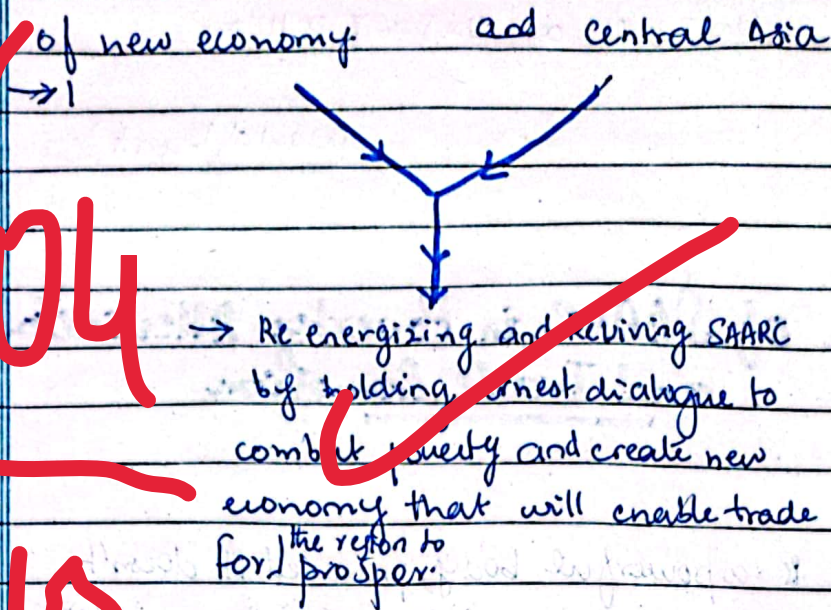 of new economy. and central Asia
→ 1
04
→ Re energizing and Reviving SAARC
by holding ernest dialogue to
combat poverty and create new
economy that will enable trade
for the region to prosper.